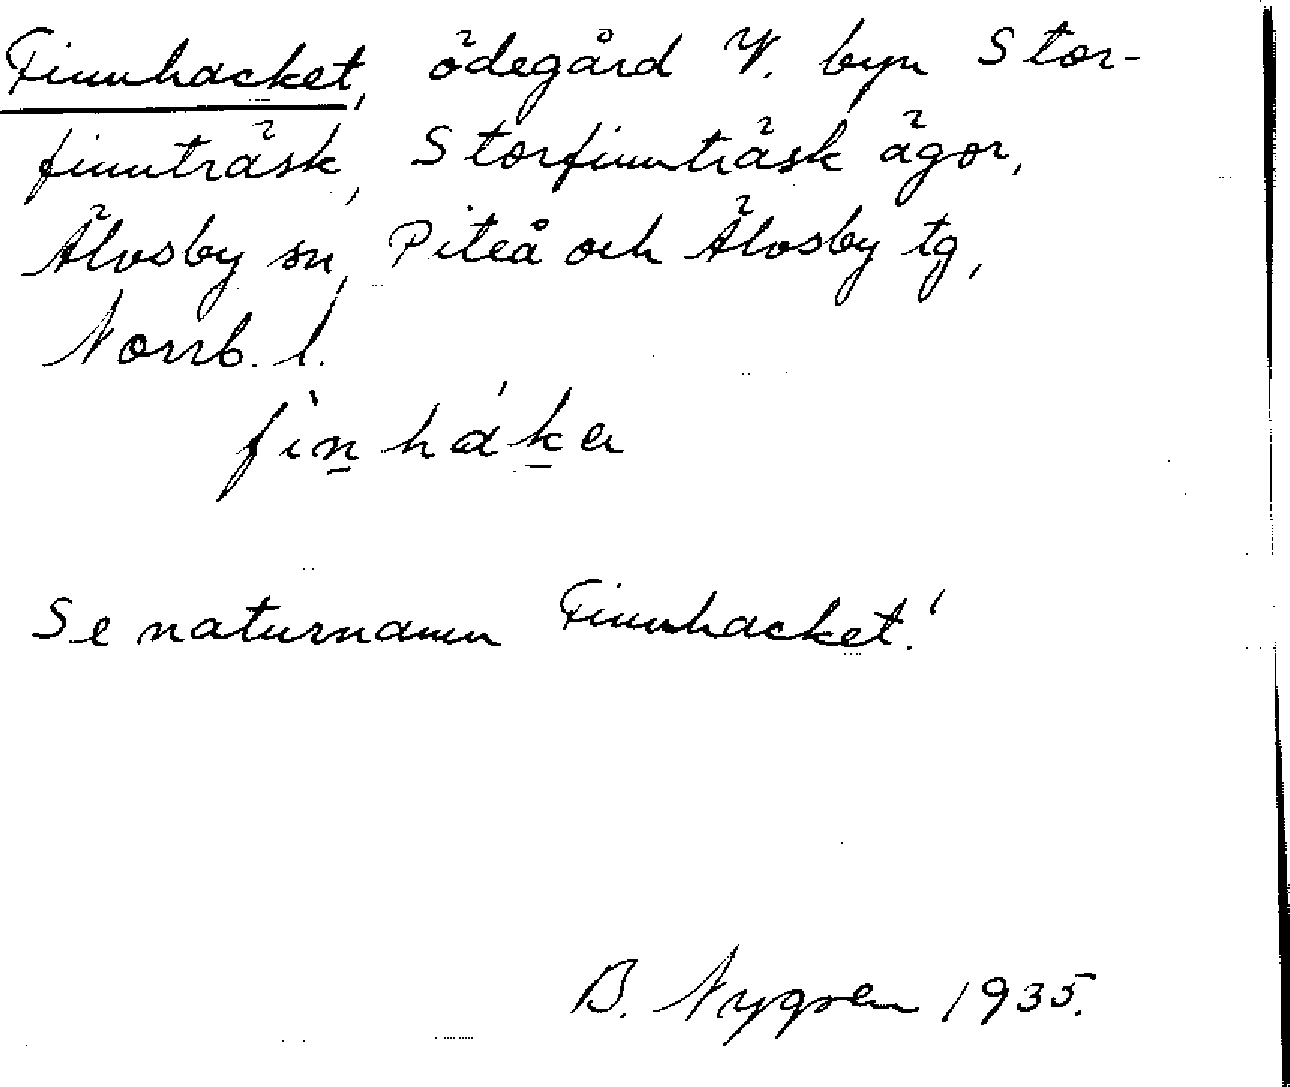 Finnhacket, ödegård V. byn Stor-
finnträsk, Storfinnträsk ägor,
Älvsby sn, Piteå och Älvsby tg,
Norrb. l.
fìn̲hák̲a
Se naturnamn Finnhacket!
B. Nygren 1935.